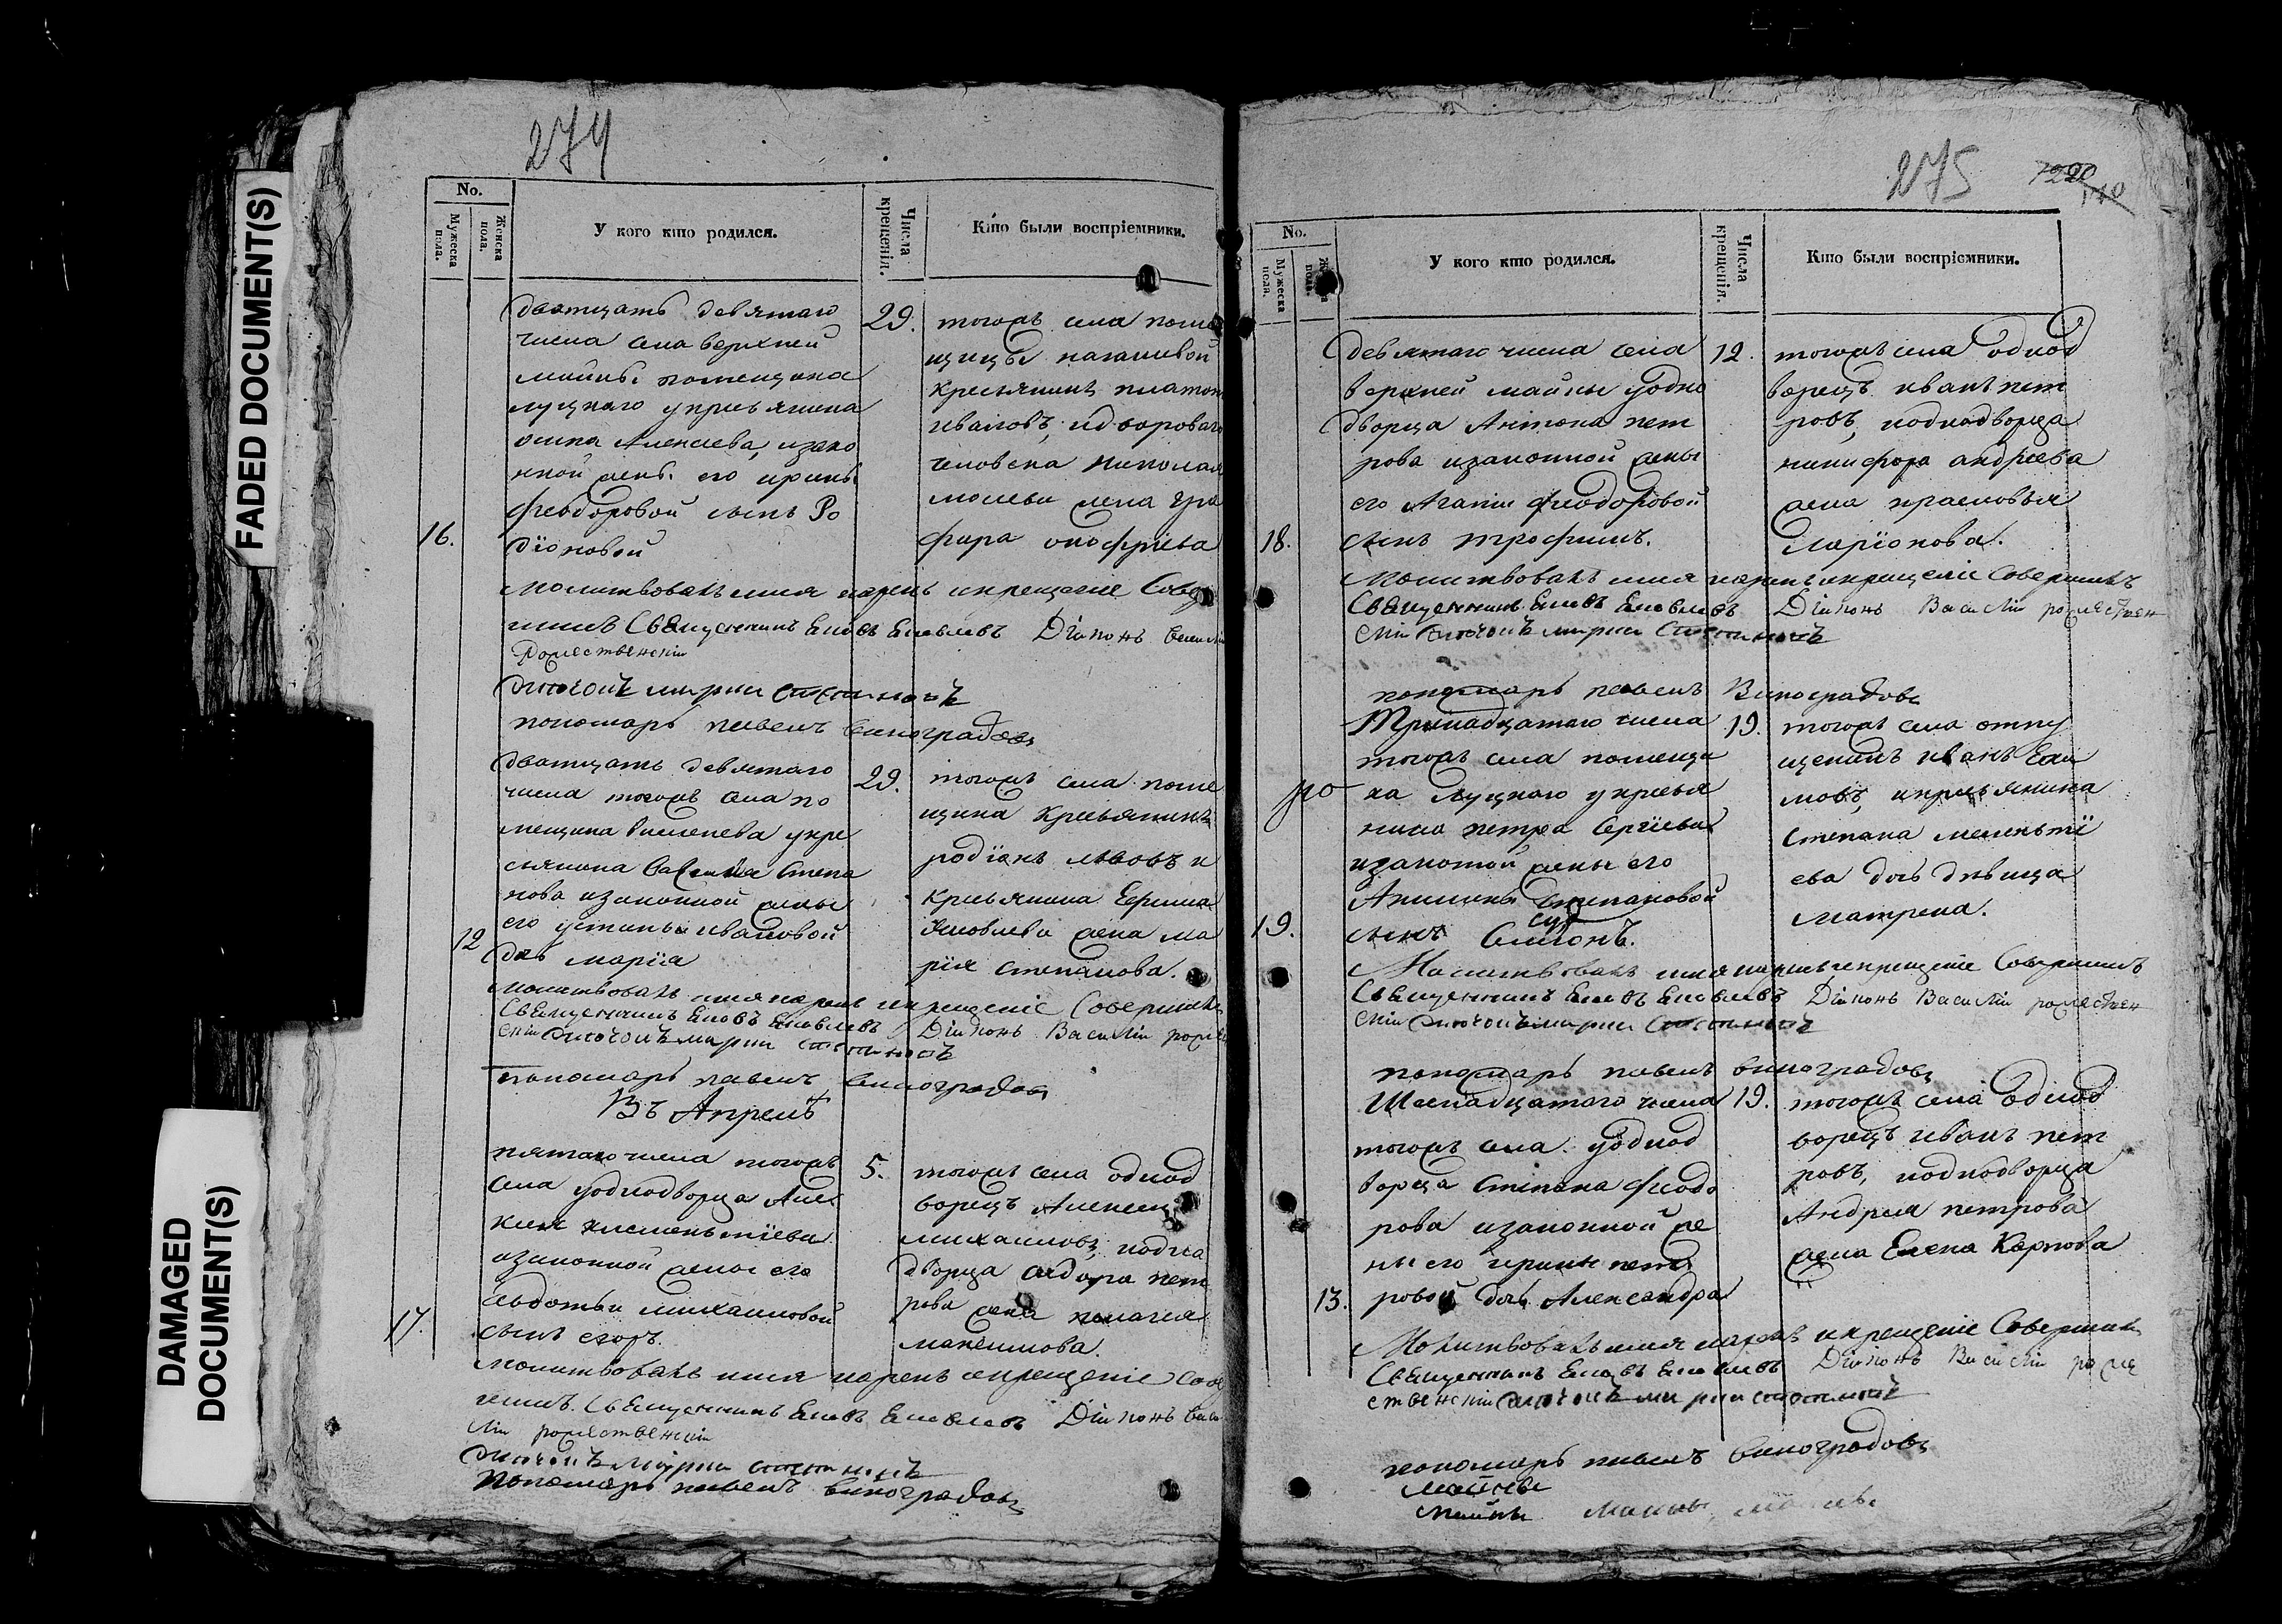 FADED DOCUMENT(S)
DAMAGED
DOCUMENT(S)
274
No.
Мужеска пола.
Женска пола.
У кого кто родился.
Числа крещенія.
Кто были воспріемники.
дватцать девятаго
числа села верхней
майны помещика
луцкаго у крестьянина
осипа Алексеева, изако
нной жены его ирины
феодоровой сынъ Ро
16.
дїоновой
29.
тогожъ села поме
щицы
крестьянинъ платонъ
ивановъ, и двороваго
человека николая
жена гла
фира онофрїева
молитвовалъ имя нарекъ и крещенїе Совер
шилъ Священникъ Їаковъ Їаковлевъ Дїаконъ Васи
Рожественскїи
пономарь павелъ виноградовъ
дватцать девятаго
числа тогожъ села по
мещика у кре
стьянина Василья Степа
нова изаконной жены
его устиньи ивановой
12
дочь марїя
29.
тогожъ села поме
щика крестьянинъ
родїонъ львовъ и
крестьянина
Яковлева жена ма
рїя степанова.
молитвовалъ имя нарекъ и крещенїе Совершилъ
Священникъ Їаковъ Їаковлевъ Дїаконъ Василїи роже
пономарь павелъ виноградовъ
Въ Апрелѣ
пятаго числа тогожъ
села у однодворца Алек
изаконной жены его
авдотьи михаиловой
17.
сынъ егоръ.
5.
тогожъ села однод
ворецъ Алексей
михаиловъ, и одно
дворца федора пет
рова жена пелагея
максимова.
молитвовалъ имя нарекъ и крещенїе Сове
шилъ. Священникъ Їаковъ Їаковлевъ Дїаконъ Васи
лїи рожественскїи
Пономарь павелъ виноградовъ
275
No.
Мужеска пола.
У кого кто родился.
Числа крещенія.
Кто были воспріемники.
девятаго числа села
верхней майны у одно
дворца Антона пет
рова изаконной жены
его Агапїи феодоровой
18.
сынъ трофимъ.
12.
тогожъ села однод
ворецъ иванъ пет
ровъ, и однодворца
никифора андреева
жена прасковья
Ларїонова.
Молитвовалъ имя нарекъ и крещенїе Совершилъ
Священникъ Їаковъ Їаковлевъ Дїаконъ Василїи рожествен
пономарь павелъ Виноградовъ
Тринадцатаго числа
тогожъ села помещи
ка луцкаго у крестья
нина петра Сергїева
изаконой жены его
Акилины Степановой
19.
сынъ Симїонъ.
19.
тогожъ села отпу
щеникъ иванъ
мовъ, и крестьянина
степана мелентї
ева дочь девица
матрена.
Молитвовалъ имя нарекъ и крещенїе Совершилъ
Священникъ Їаковъ Їаковлевъ Дїаконъ Василїи рожествен
пономарь павелъ виноградовъ
Шеснадцатаго числа
тогожъ села у однод
ворца Степана феодо
рова изаконной же
ны его ирины пет
13.
ровой дочь Александра
19.
тогожъ села однод
ворецъ иванъ пет
ровъ, и однодворца
Андрея петрова
жена Елена Карпова
Молитвовалъ имя нарекъ и крещенїе Совершилъ
Священникъ Їаковъ Їаковлевъ Дїаконъ Василїи роже
ственскїи
пономарь павелъ виноградовъ
майны
майны майны майны